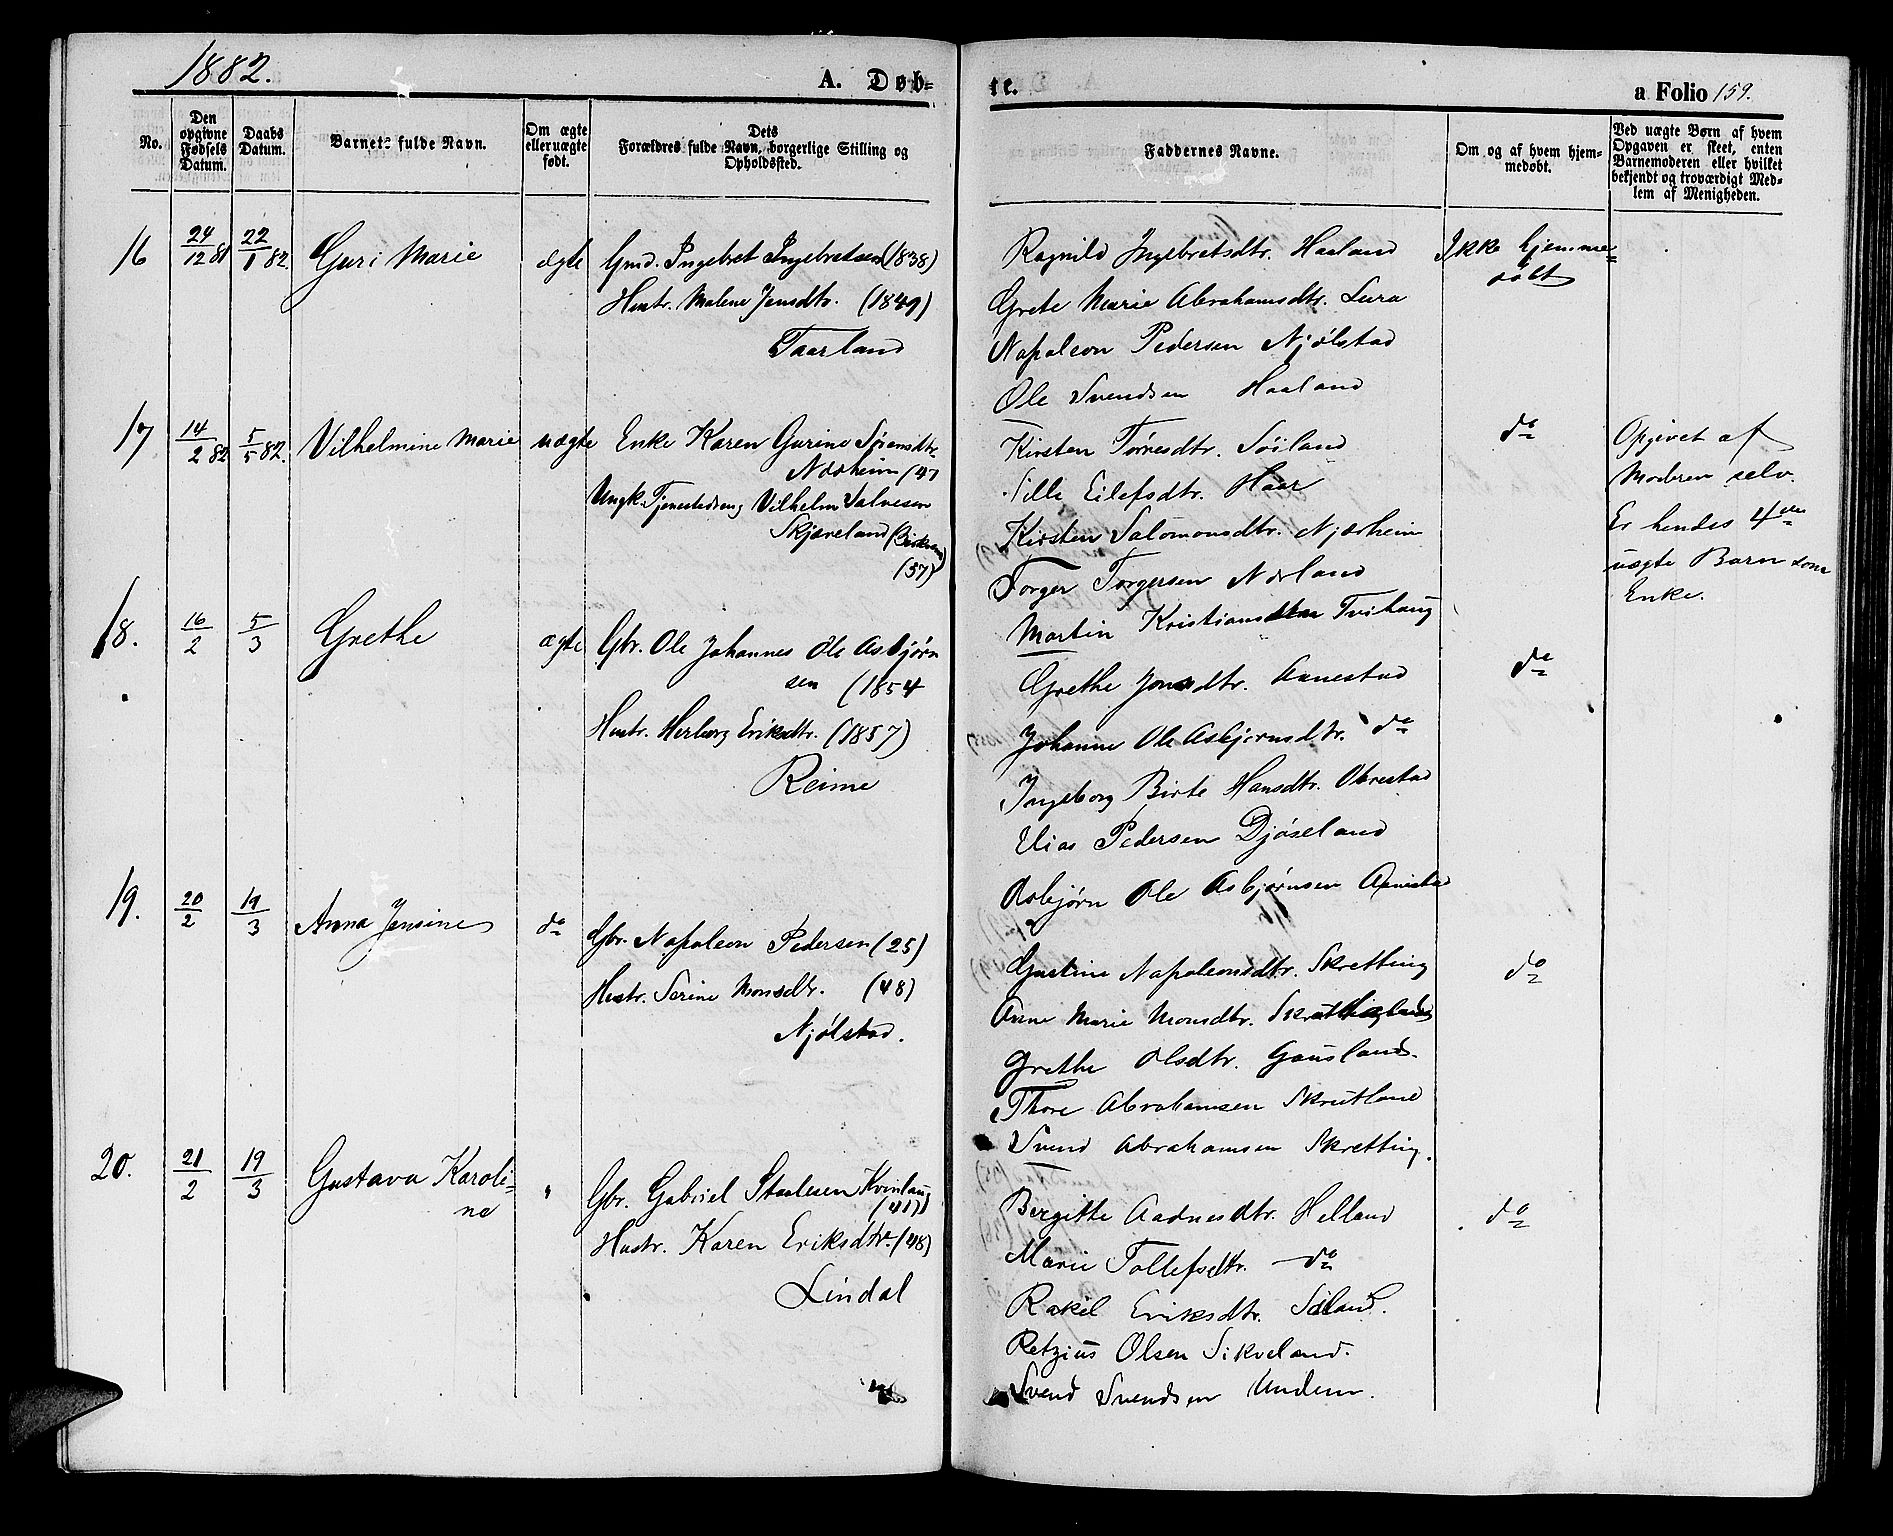 1882.
A. Døb-
te.
a Folio 159.
No.
Den opgivne Fødsels Datum.
Daabs Datum.
Barnets fulde Navn.
Om ægte eller uægte født.
Dets Forældres fulde Navn, borgerlige Stilling og Opholdssted.
Faddernes Navne.
Om og af hvem hjemmedøbt.
Ved uægte Børn af hvem Opgaven er skeet, enten Barnemoderen eller hvilket bekjendt og troværdigt Medlem af Menigheden.
16
24/12 81
22/1 82
Guri Marie
ægte
Gmd. Ingebret Ingebretsen (1838)
Hustr. Malene Jensdtr. (1849)
Taarland
Ragnild Ingebretsdtr. Haaland
Grete Marie Abrahamsdtr. Lura
Napoleon Pedersen Njølstad
Ole Svendsen Haaland
Ikke hjemme=
døbt
17
14/2 82
5/5 82.
Vilhelmine Marie
uægte
Enke Karen Gurine Sørensdtr.
Nærheim (47
Ungk. Tjenestedreng Vilhelm Salvesen
Skjæveland
(57)
Kirsten Tørresdtr. Söiland
Sille Eilefsdtr. Haar
Kirsten Salomonsdtr. Njærheim
Torger Torgersen Nærland
Martin Kristiansen Tvihaug
do
Opgivet af
Moderen selv.
Er hendes 4de
uægte Barn som
Enke.
18.
16/2
5/3
Grethe
ægte
Gbr. Ole Johannes Ole Asbjørn
sen (1854
Hustr. Herborg Eriksdtr. (1857)
Reime
Grethe Jonsdtr. Aanestad
Johanne Ole Asbjørnsdtr. do
Ingeborg Birte Hansdtr. Obrestad
Elias Pedersen Djøseland
Asbjørn Ole Asbjørnsen Aanestad
do
19.
20/2
19/3
Anna Jensine
do
Gbr. Napoleon Pedersen (25)
Hustr. Serine Monsdtr. (48)
Njølstad.
Gustine Napoleonsdtr. Skretting
Anne Marie Monsdtr.
Grethe Olsdtr. Gausland.
Thore Abrahamsen Skrutland
Svend Abrahamsen Skretting.
do
20.
21/2
19/3
Gustava Karoli=
ne
"
Gbr. Gabriel Staalesen Kvinlaug
(41)
Hustr. Karen Eriksdtr. (48)
Lindal
Bergitte Aadnesdtr. Helland
Marie Tollefsdtr. do
Rakel Eriksdtr.
Retzius Olsen Sikveland.
Svend Svendsen Undem.
do